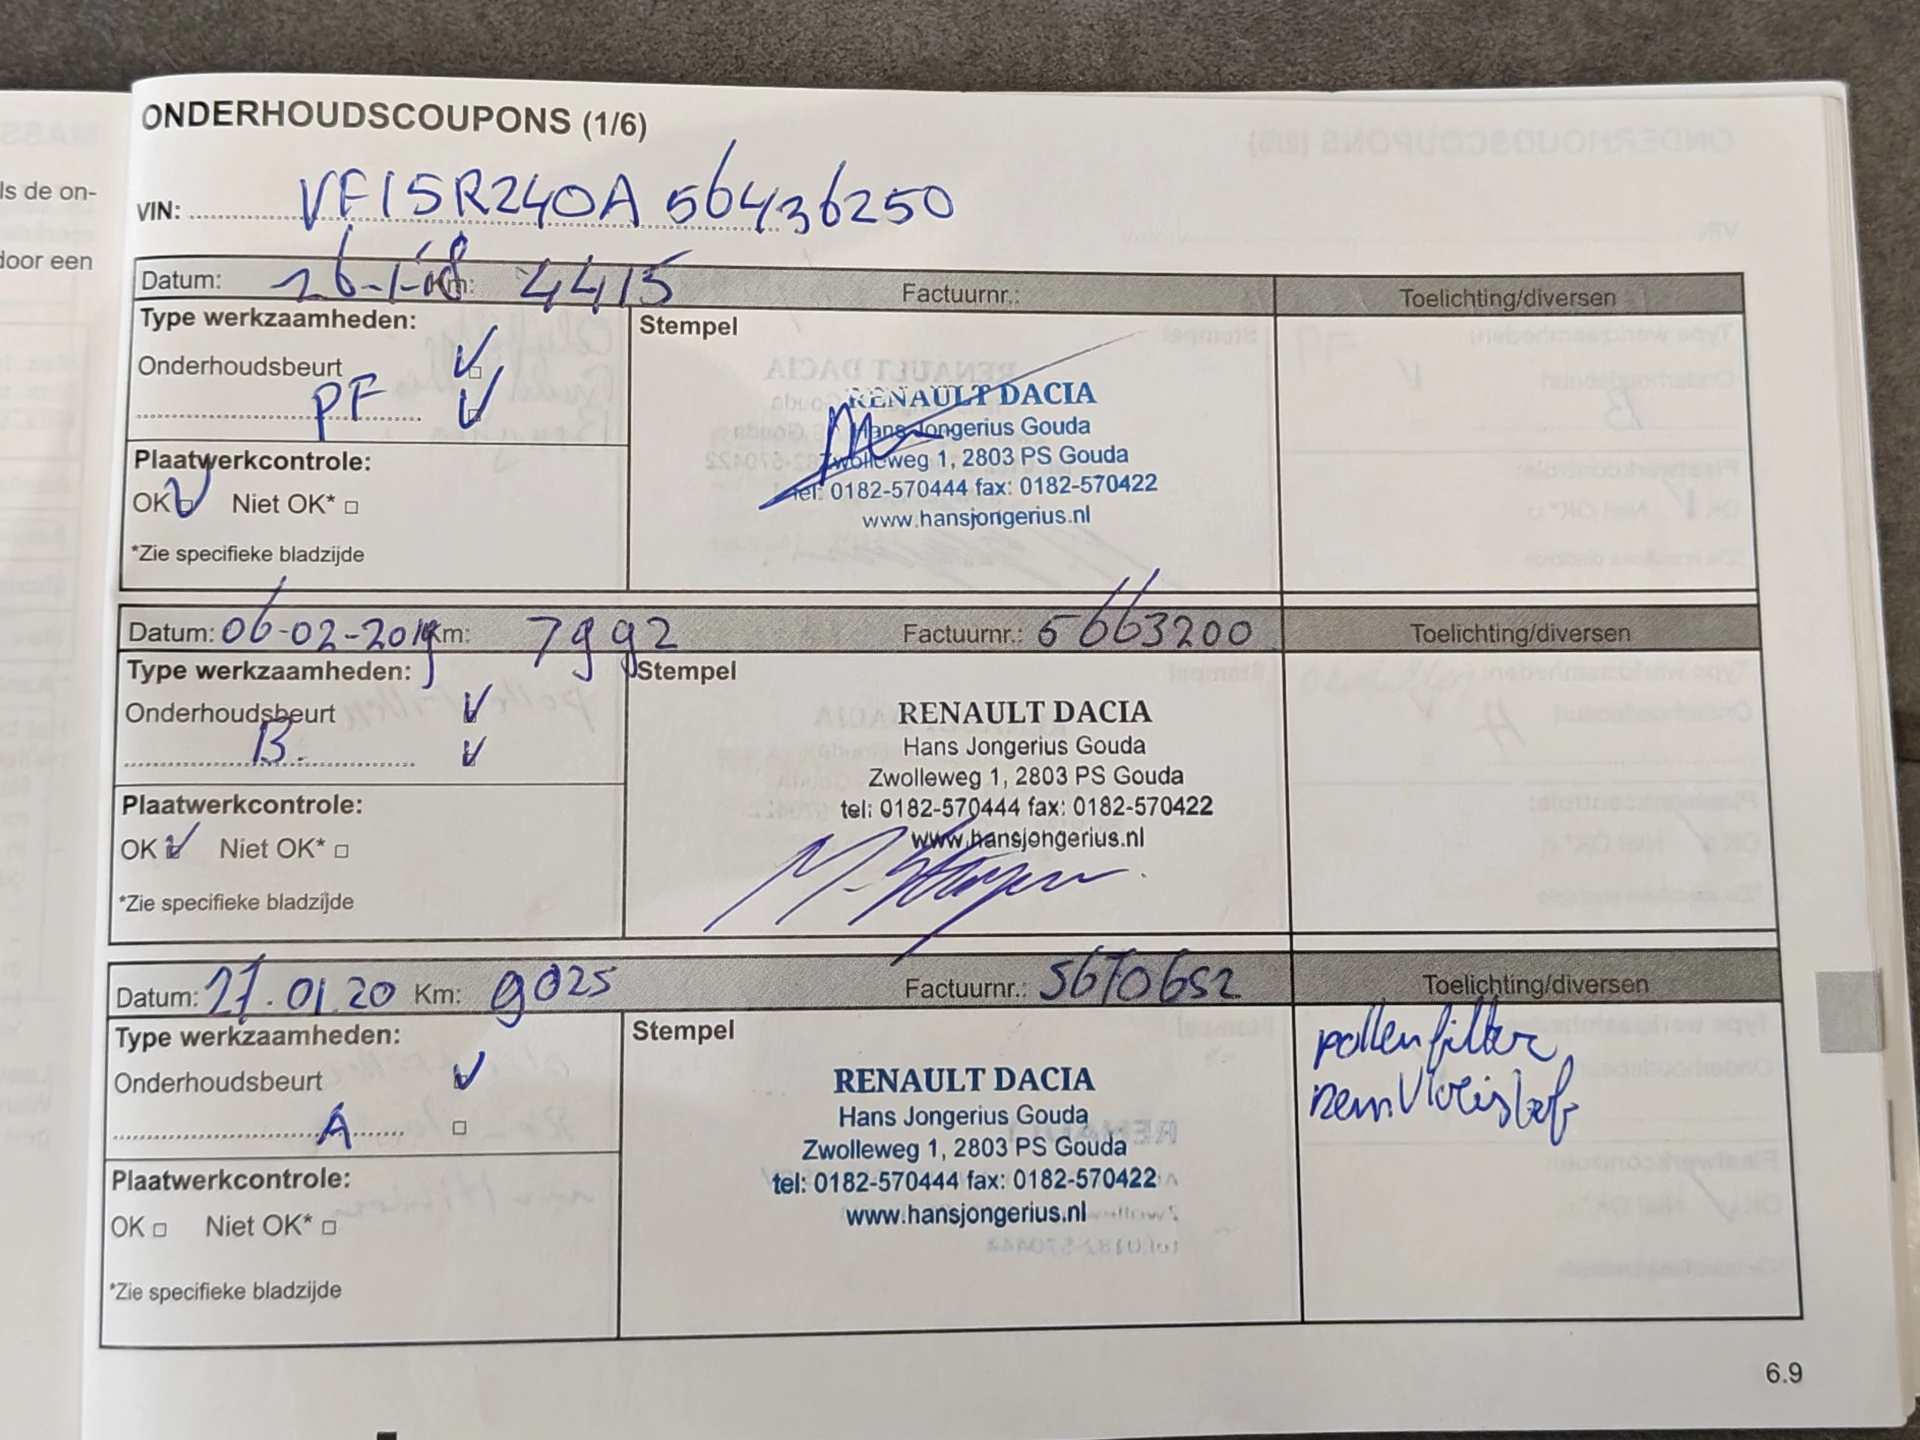 ls de on-
door een
ONDERHOUDSCOUPONS (1/6)
VIN: VF15R240A56436250
Datum: 26-1-18 Km: 4415 Factuurnr.: Toelichting/diversen
Type werkzaamheden:
Onderhoudsbeurt
PF
Plaatwerkcontrole:
OK Niet OK*
*Zie specifieke bladzijde
Stempel
RENAULT DACIA
Hans Jongerius Gouda
Zwolleweg 1, 2803 PS Gouda
tel: 0182-570444 fax: 0182-570422
www.hansjongerius.nl
Datum: 06-02-2019 Km: 7992 Factuurnr.: 5663200 Toelichting/diversen
Type werkzaamheden:
Onderhoudsbeurt
B.
Plaatwerkcontrole:
OK Niet OK*
*Zie specifieke bladzijde
Stempel
RENAULT DACIA
Hans Jongerius Gouda
Zwolleweg 1, 2803 PS Gouda
tel: 0182-570444 fax: 0182-570422
www.hansjongerius.nl
Datum: 27.01.20 Km: 9025 Factuurnr.: 5670652 Toelichting/diversen
Type werkzaamheden:
Onderhoudsbeurt
A
Plaatwerkcontrole:
OK Niet OK*
*Zie specifieke bladzijde
Stempel
RENAULT DACIA
Hans Jongerius Gouda
Zwolleweg 1, 2803 PS Gouda
tel: 0182-570444 fax: 0182-570422
www.hansjongerius.nl
pollenfilter
remvloeistof
6.9